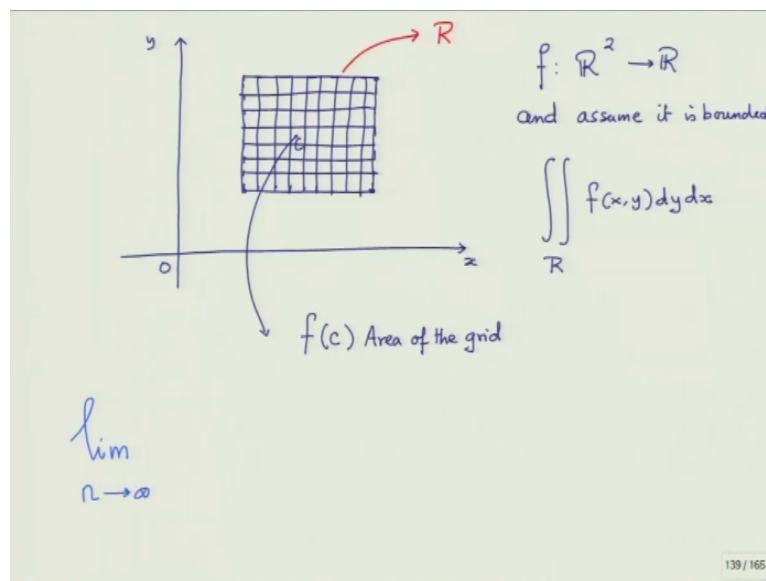 y
R
f: ℝ² → ℝ
and assume it is bounded
∬ f(x,y) dy dx
R
c
0
x
f(c) Area of the grid
lim
n→∞
139 / 165